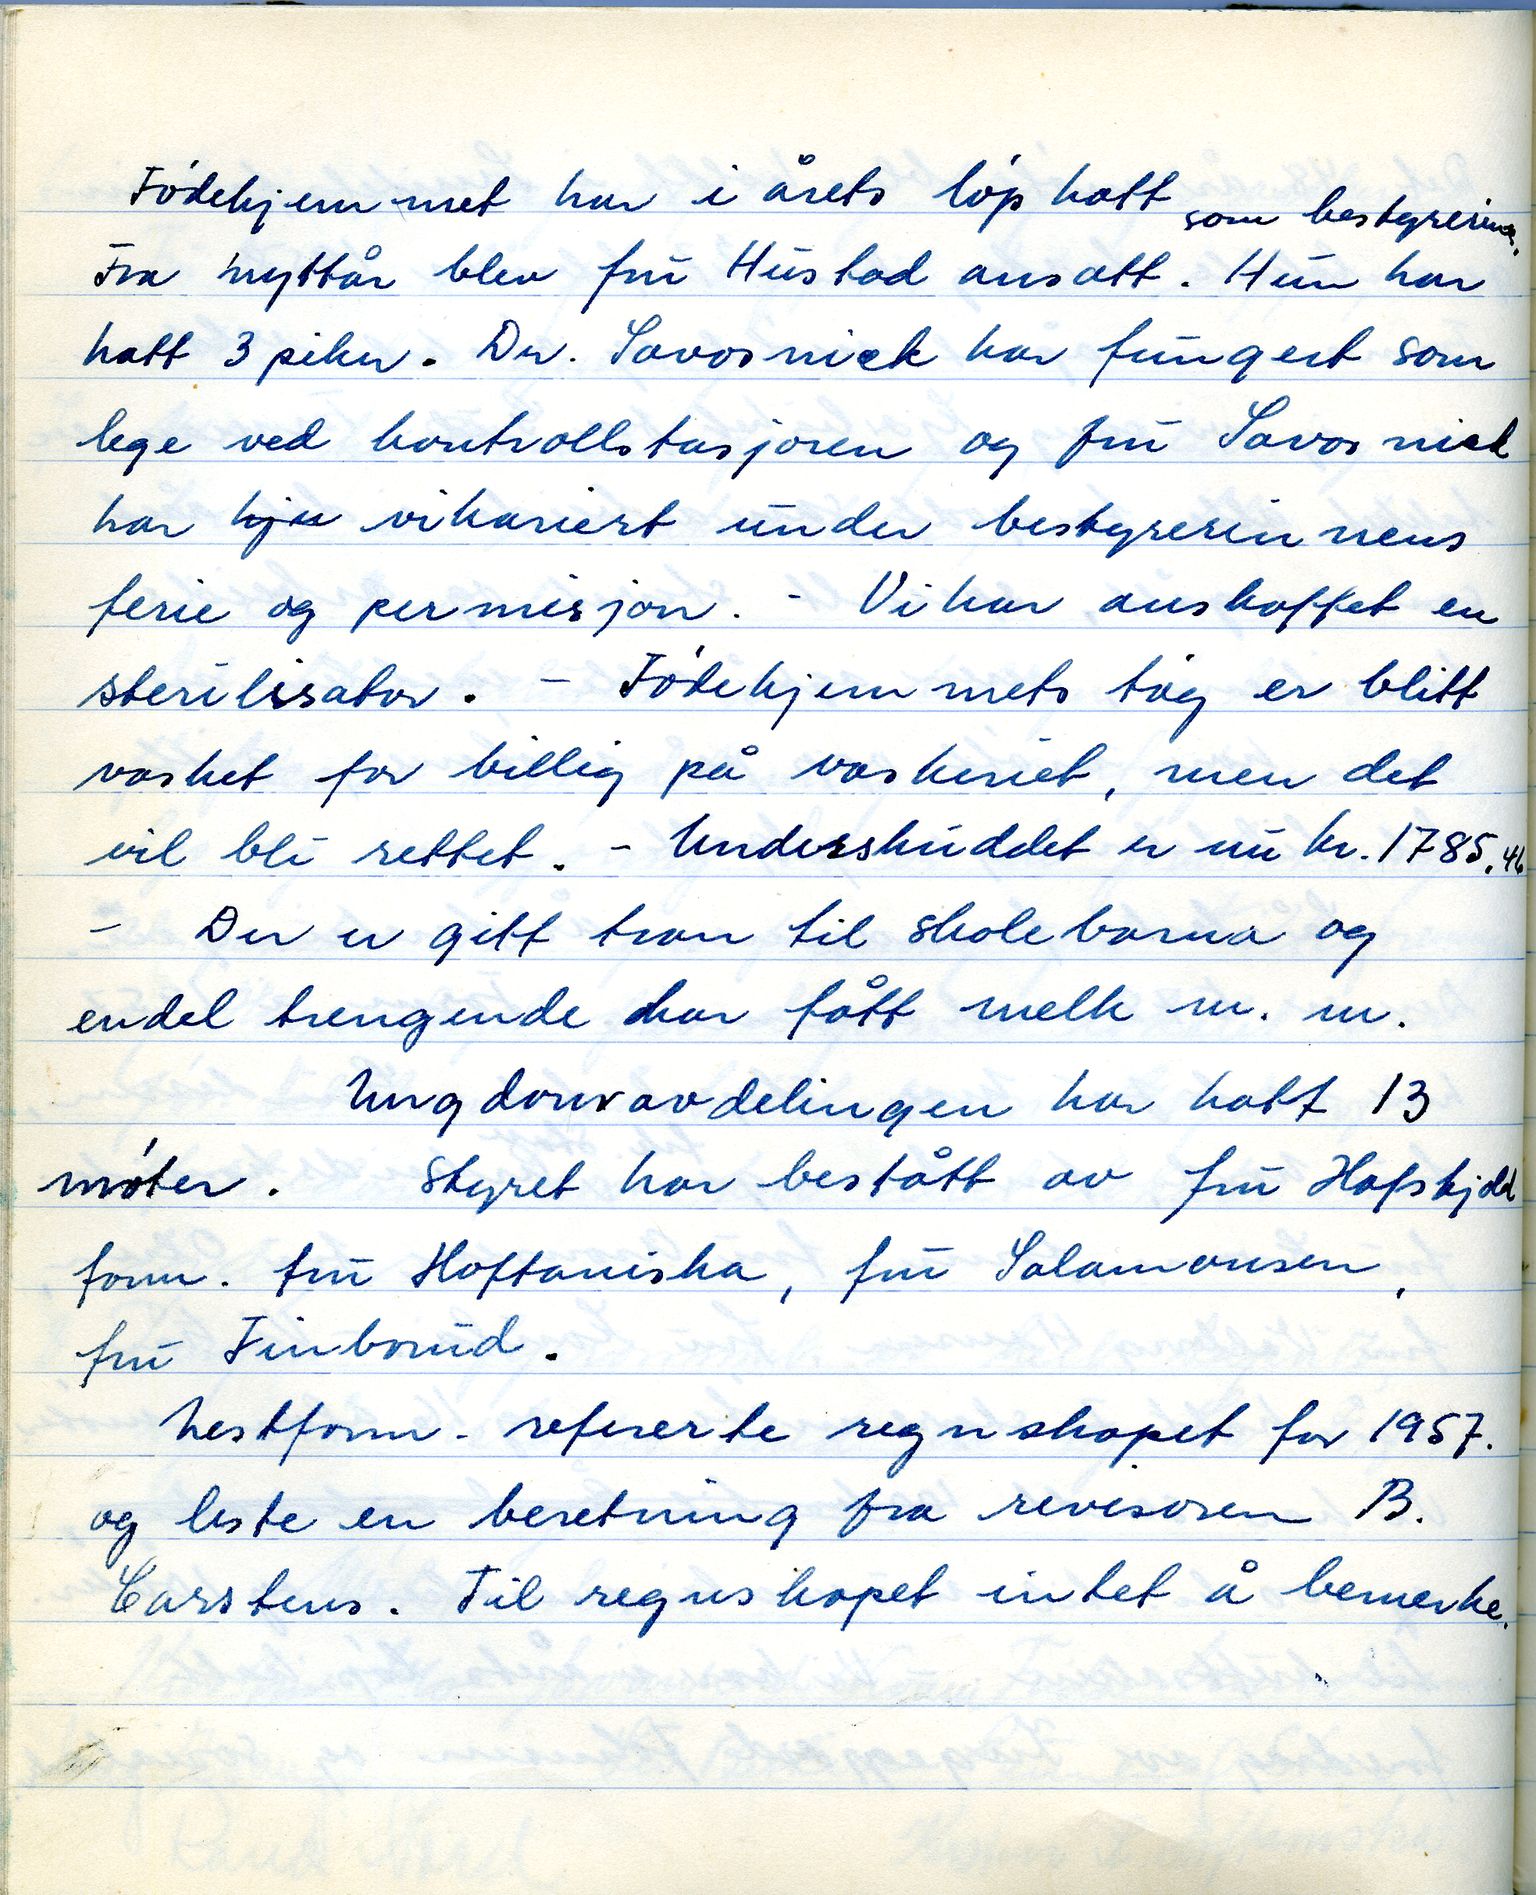 Fødehjemmet har i årets løp hatt som bestyrerinne.
Fra nyttår blev frū Hūstad ansatt. Hūn har
hatt 3 piker. Dr. Savosnick har fūngert som
lege ved kontrollstasjonen og frū Savosnick
har hju vikariert ūnder bestyrerinnens
ferie og permisjon. - Vi har anskaffet en
sterilisator. - Fødehjemmets tøy er blitt
vasket for billig på vaskeriet, men det
vil bli rettet. - Underskūddet er nū kr. 1785.46
- Der er gitt tran til skolebarna og
endel trengende har fått melk m. m.
Ungdomsavdelingen har hatt 13
møter. Styret har bestått av frū Hafskjold
form. frū Hoftaniska, frū Salamonsen,
frū Finborūd.
Nestform. refererte regnskapet for 1957.
og leste en beretning fra revisoren B.
Carstens. Til regnskapet intet å bemerke.